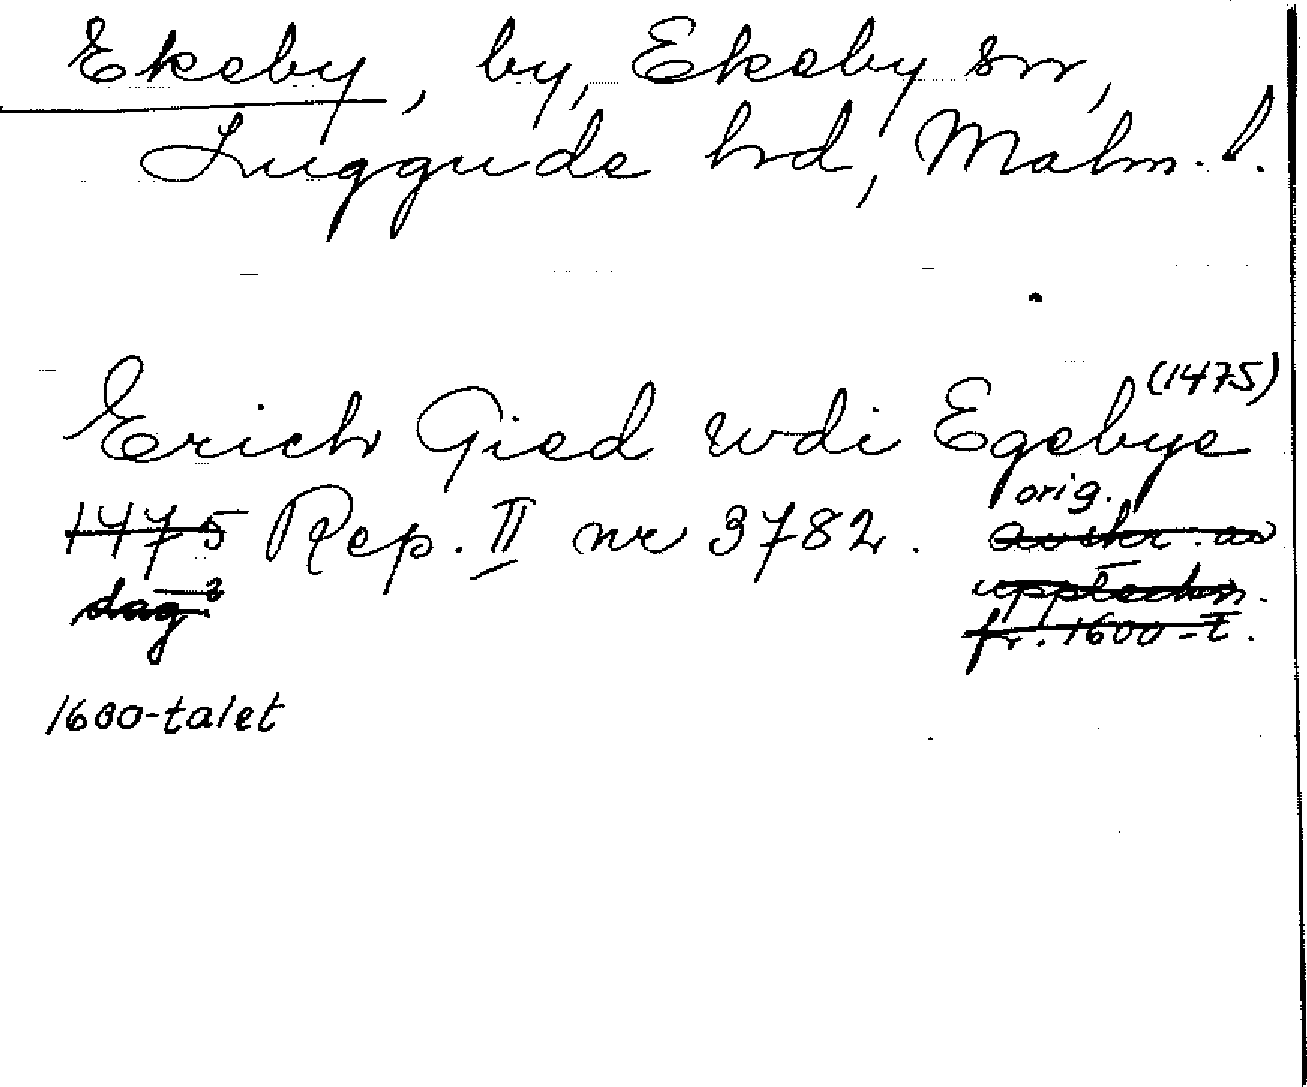 Ekeby, by, Ekeby sn,
Luggude hrd, Malm. l.
(1475)
Erich Gied wdi Egebye
orig.
1475 Rep. II nr 3782. avskr. av
dag? uppteckn.
fr. 1600-t.
1600-talet